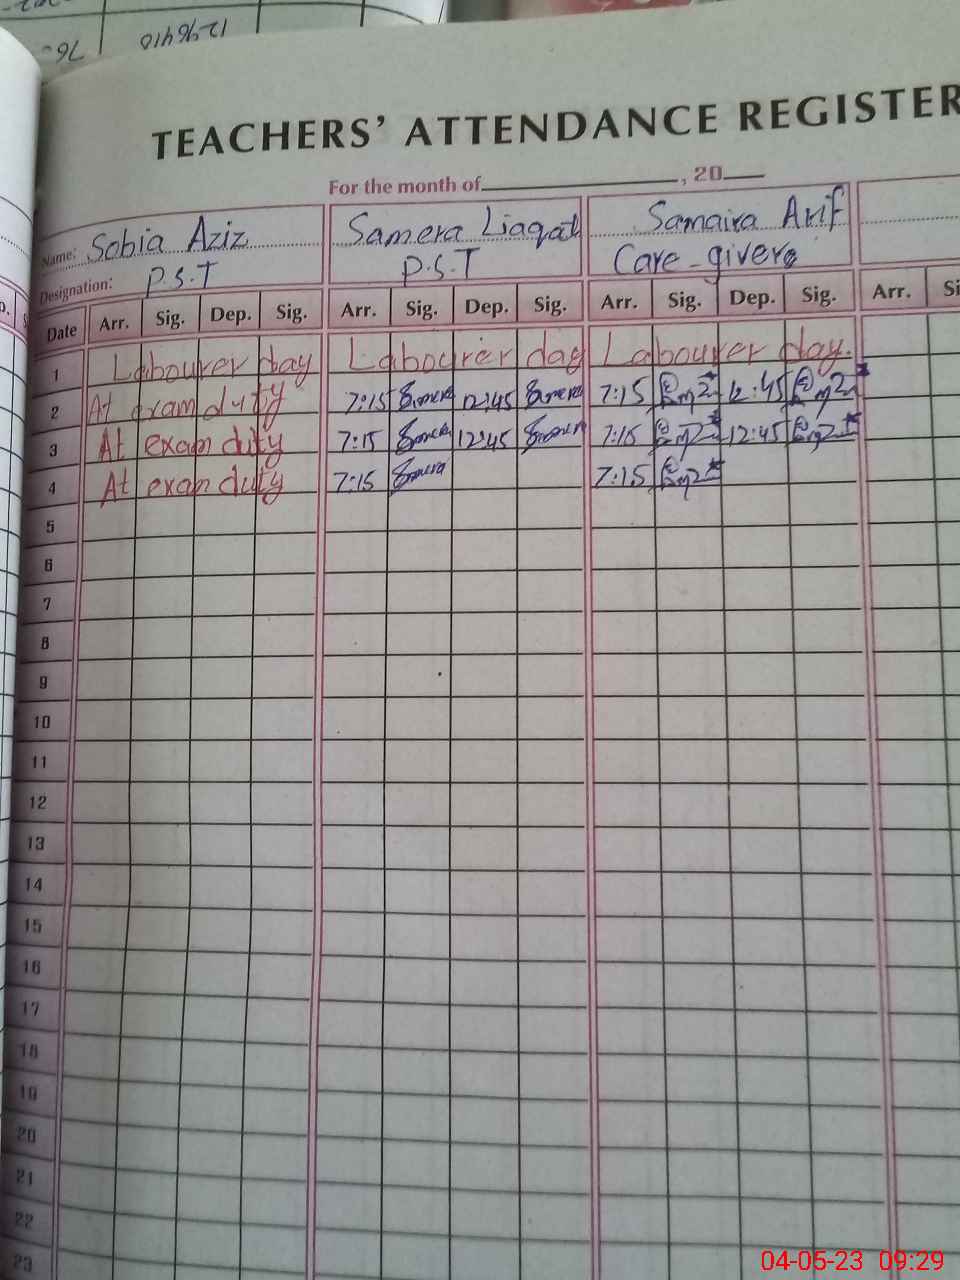 1296410
76-
TEACHERS' ATTENDANCE REGISTER
For the month of , 20
Name: Sobia Aziz Samera Liaqat Samaira Arif
Designation: P.S.T P.S.T Care-givero
Date Arr. Sig. Dep. Sig. Arr. Sig. Dep. Sig. Arr. Sig. Dep. Sig. Arr. Si
1 Labourer day Labourer day Labourer day.
2 At exam duty 7:15 Samera 12:45 Samera 7:15 12:45
3 At exam duty 7:15 Samera 12:45 Samera 7:15 12:45
4 At exam duty 7:15 Samera 7:15
5
6
7
8
9
10
11
12
13
14
15
16
17
18
19
20
21
22
23
04-05-23 09:29